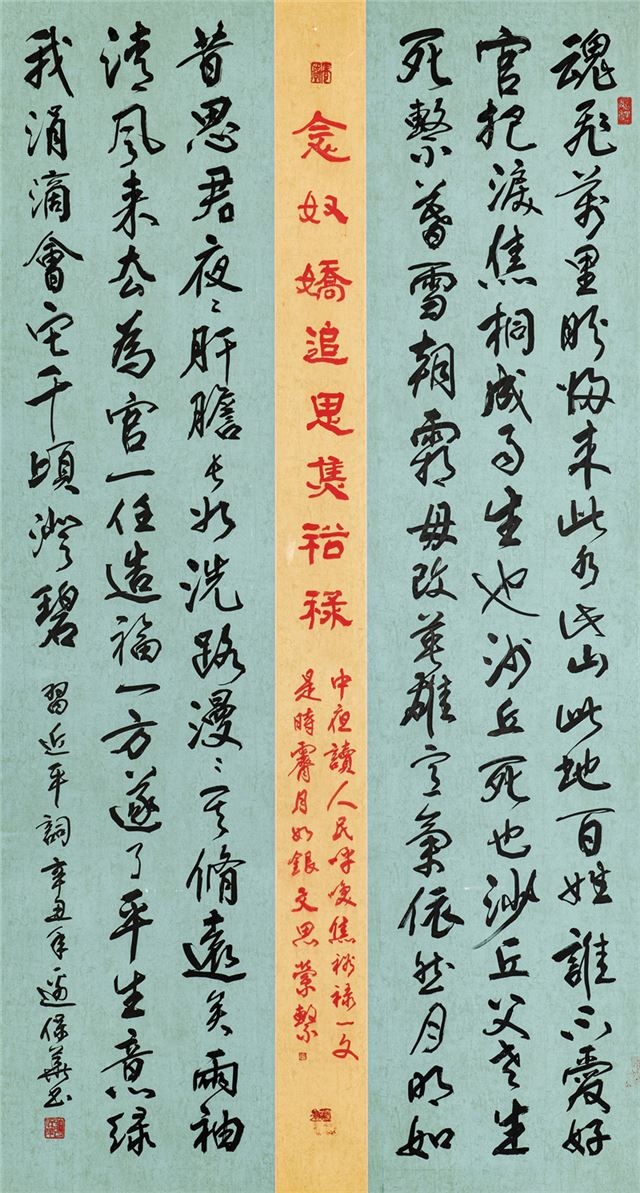 魂飛萬里盼歸来此水此山此地百姓誰不愛好
官把淚焦桐成雨生也沙丘死也沙丘父老生
死繫暮雪朝霜毋改英雄意氣依然月明如
念奴嬌追思焦裕祿
中夜讀人民呼喚焦裕祿一文
是時霽月如銀文思縈繫
昔思君夜〻肝膽長如洗路漫〻其脩遠矣兩袖
清風来去為官一任造福一方遂了平生意绿
我涓滴會它千頃澄碧
習近平詞辛丑年邊保華書